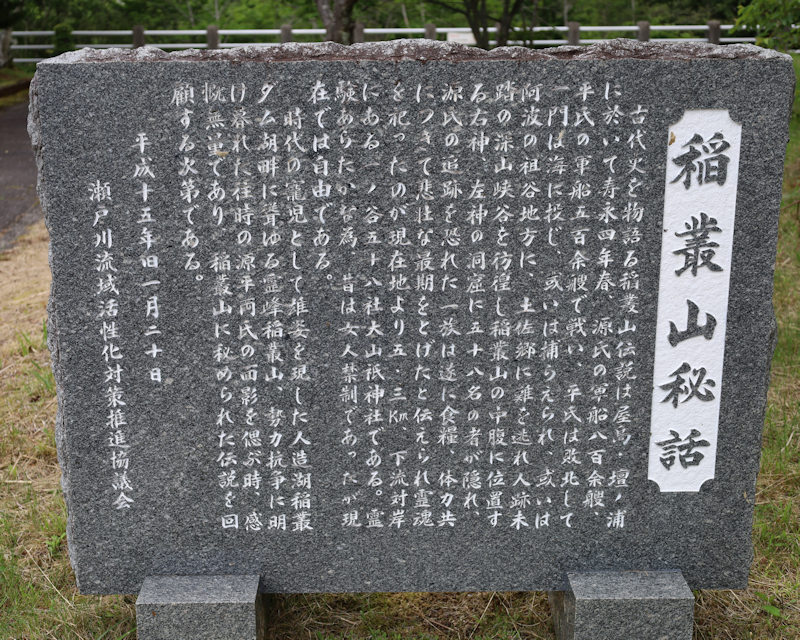 稲叢山秘話
古代史を物語る稲叢山伝説は屋島・壇ノ浦
に於いて寿永四年春、源氏の軍船八百余艘、
平氏の軍船五百余艘で戦い、平氏は敗北して
一門は海に投じ、或いは捕らえられ、或いは
阿波の祖谷地方に、土佐郷に難を逃れ人跡未
踏の深山峡谷を彷徨し稲叢山の中腹に位置す
る右神、左神の洞窟に五十八名の者が隠れ、
源氏の追跡を恐れた一族は遂に食糧、体力共
につきて悲壮な最期をとげたと伝えられ霊魂
を祀ったのが現在地より五・三㎞、下流対岸
にある一ノ谷五十八社大山祇神社である。霊
験あらたかな為、昔は女人禁制であったが現
在では自由である。
時代の寵児として雄姿を現した人造湖稲叢
ダム湖畔に聳ゆる霊峰稲叢山、勢力抗争に明
け暮れた往時の源平両氏の面影を偲ぶ時、感
慨無量であり、稲叢山に秘められた伝説を回
顧する次第である。
平成十五年旧一月二十日
瀬戸川流域活性化対策推進協議会